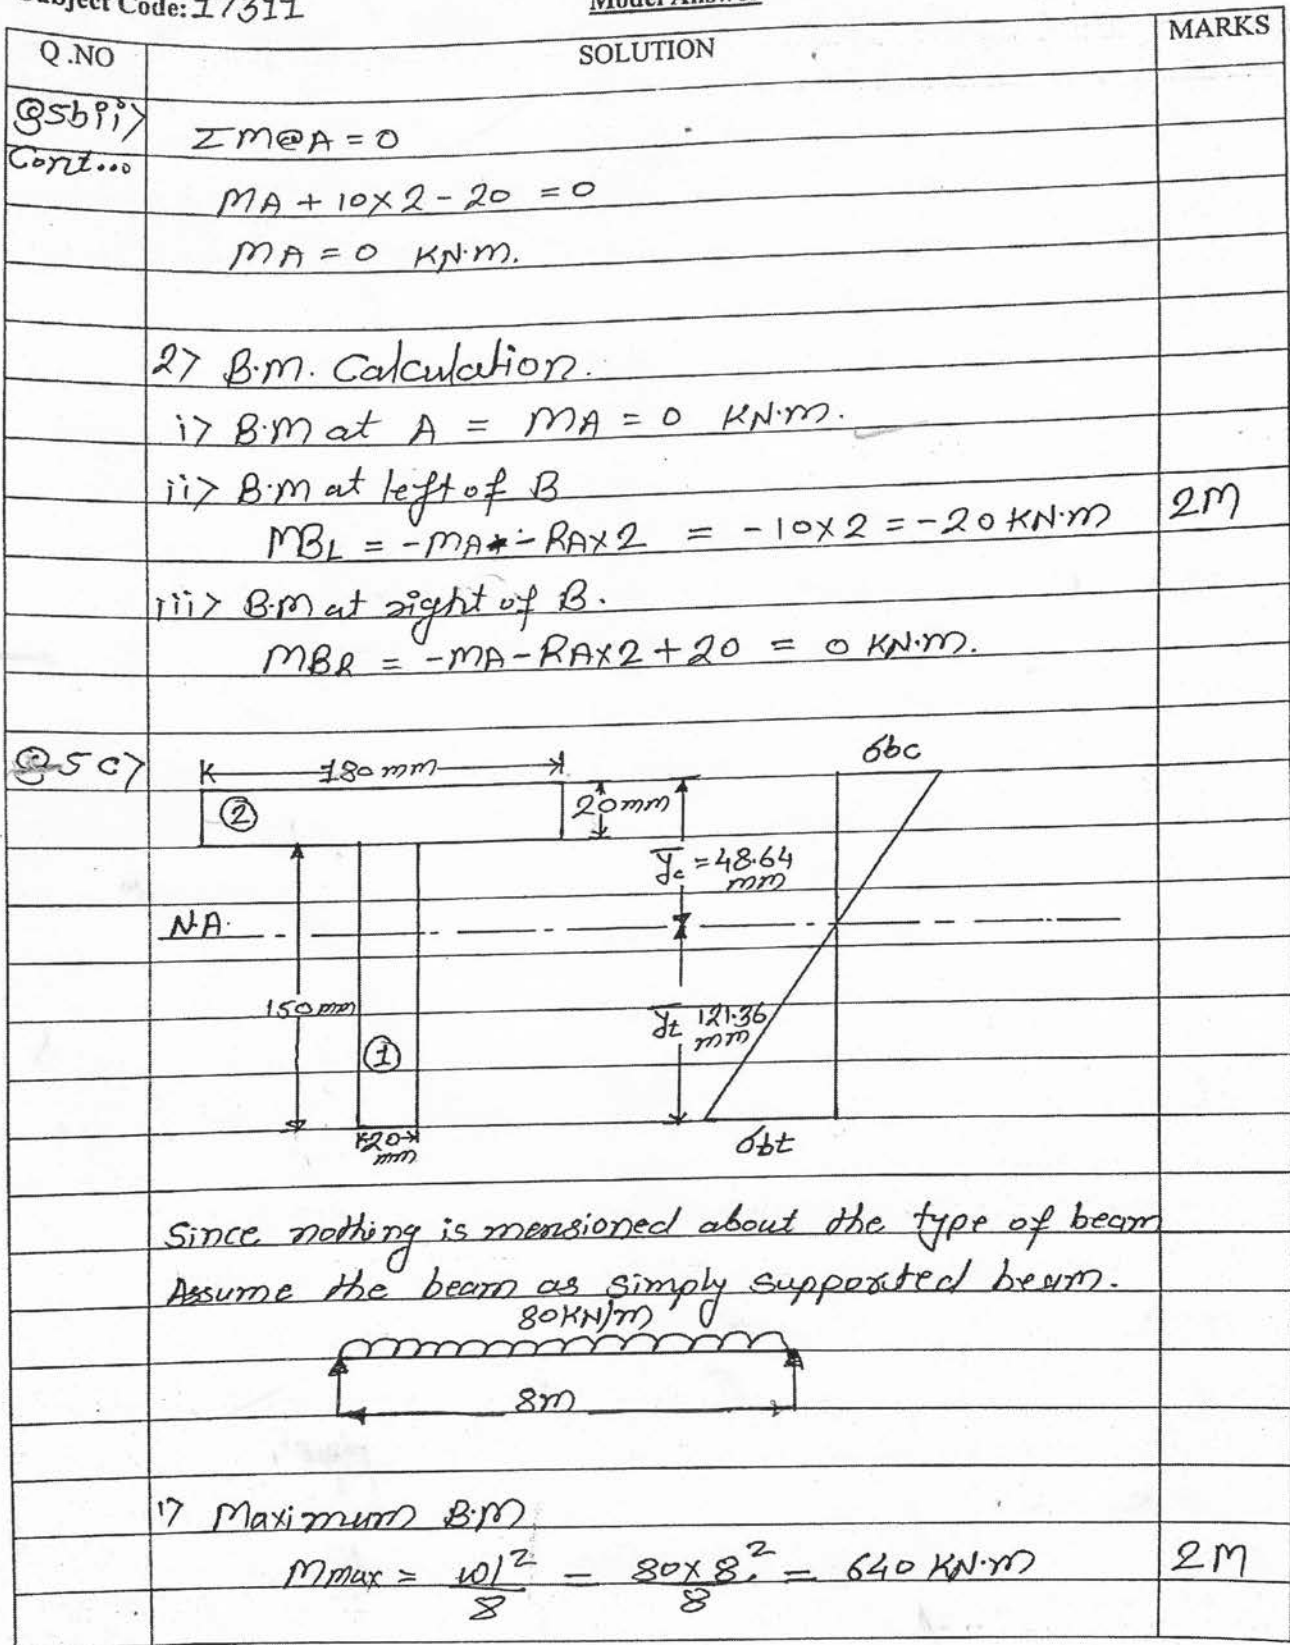 Subject Code: 17311
Model Answer
Q.NO SOLUTION MARKS
Q5bii>
Cont...
ΣM@A = 0
MA + 10×2 - 20 = 0
MA = 0 KN·m.
2> B.M. Calculation.
i> B.M at A = MA = 0 KN·m.
ii> B.M at left of B
MBL = -MA - RA×2 = -10×2 = -20 KN·m 2M
iii> B.M at right of B.
MBR = -MA - RA×2 + 20 = 0 KN·m.
Q5c>
180mm
σbc
②
20mm
ȳc = 48.64
mm
N.A.
150mm
ȳt 121.36
mm
①
20
mm
σbt
Since nothing is mensioned about the type of beam
Assume the beam as simply supported beam.
80KN/m
8m
i> Maximum B.M
Mmax = wl²/8 = 80×8²/8 = 640 KN·m 2M